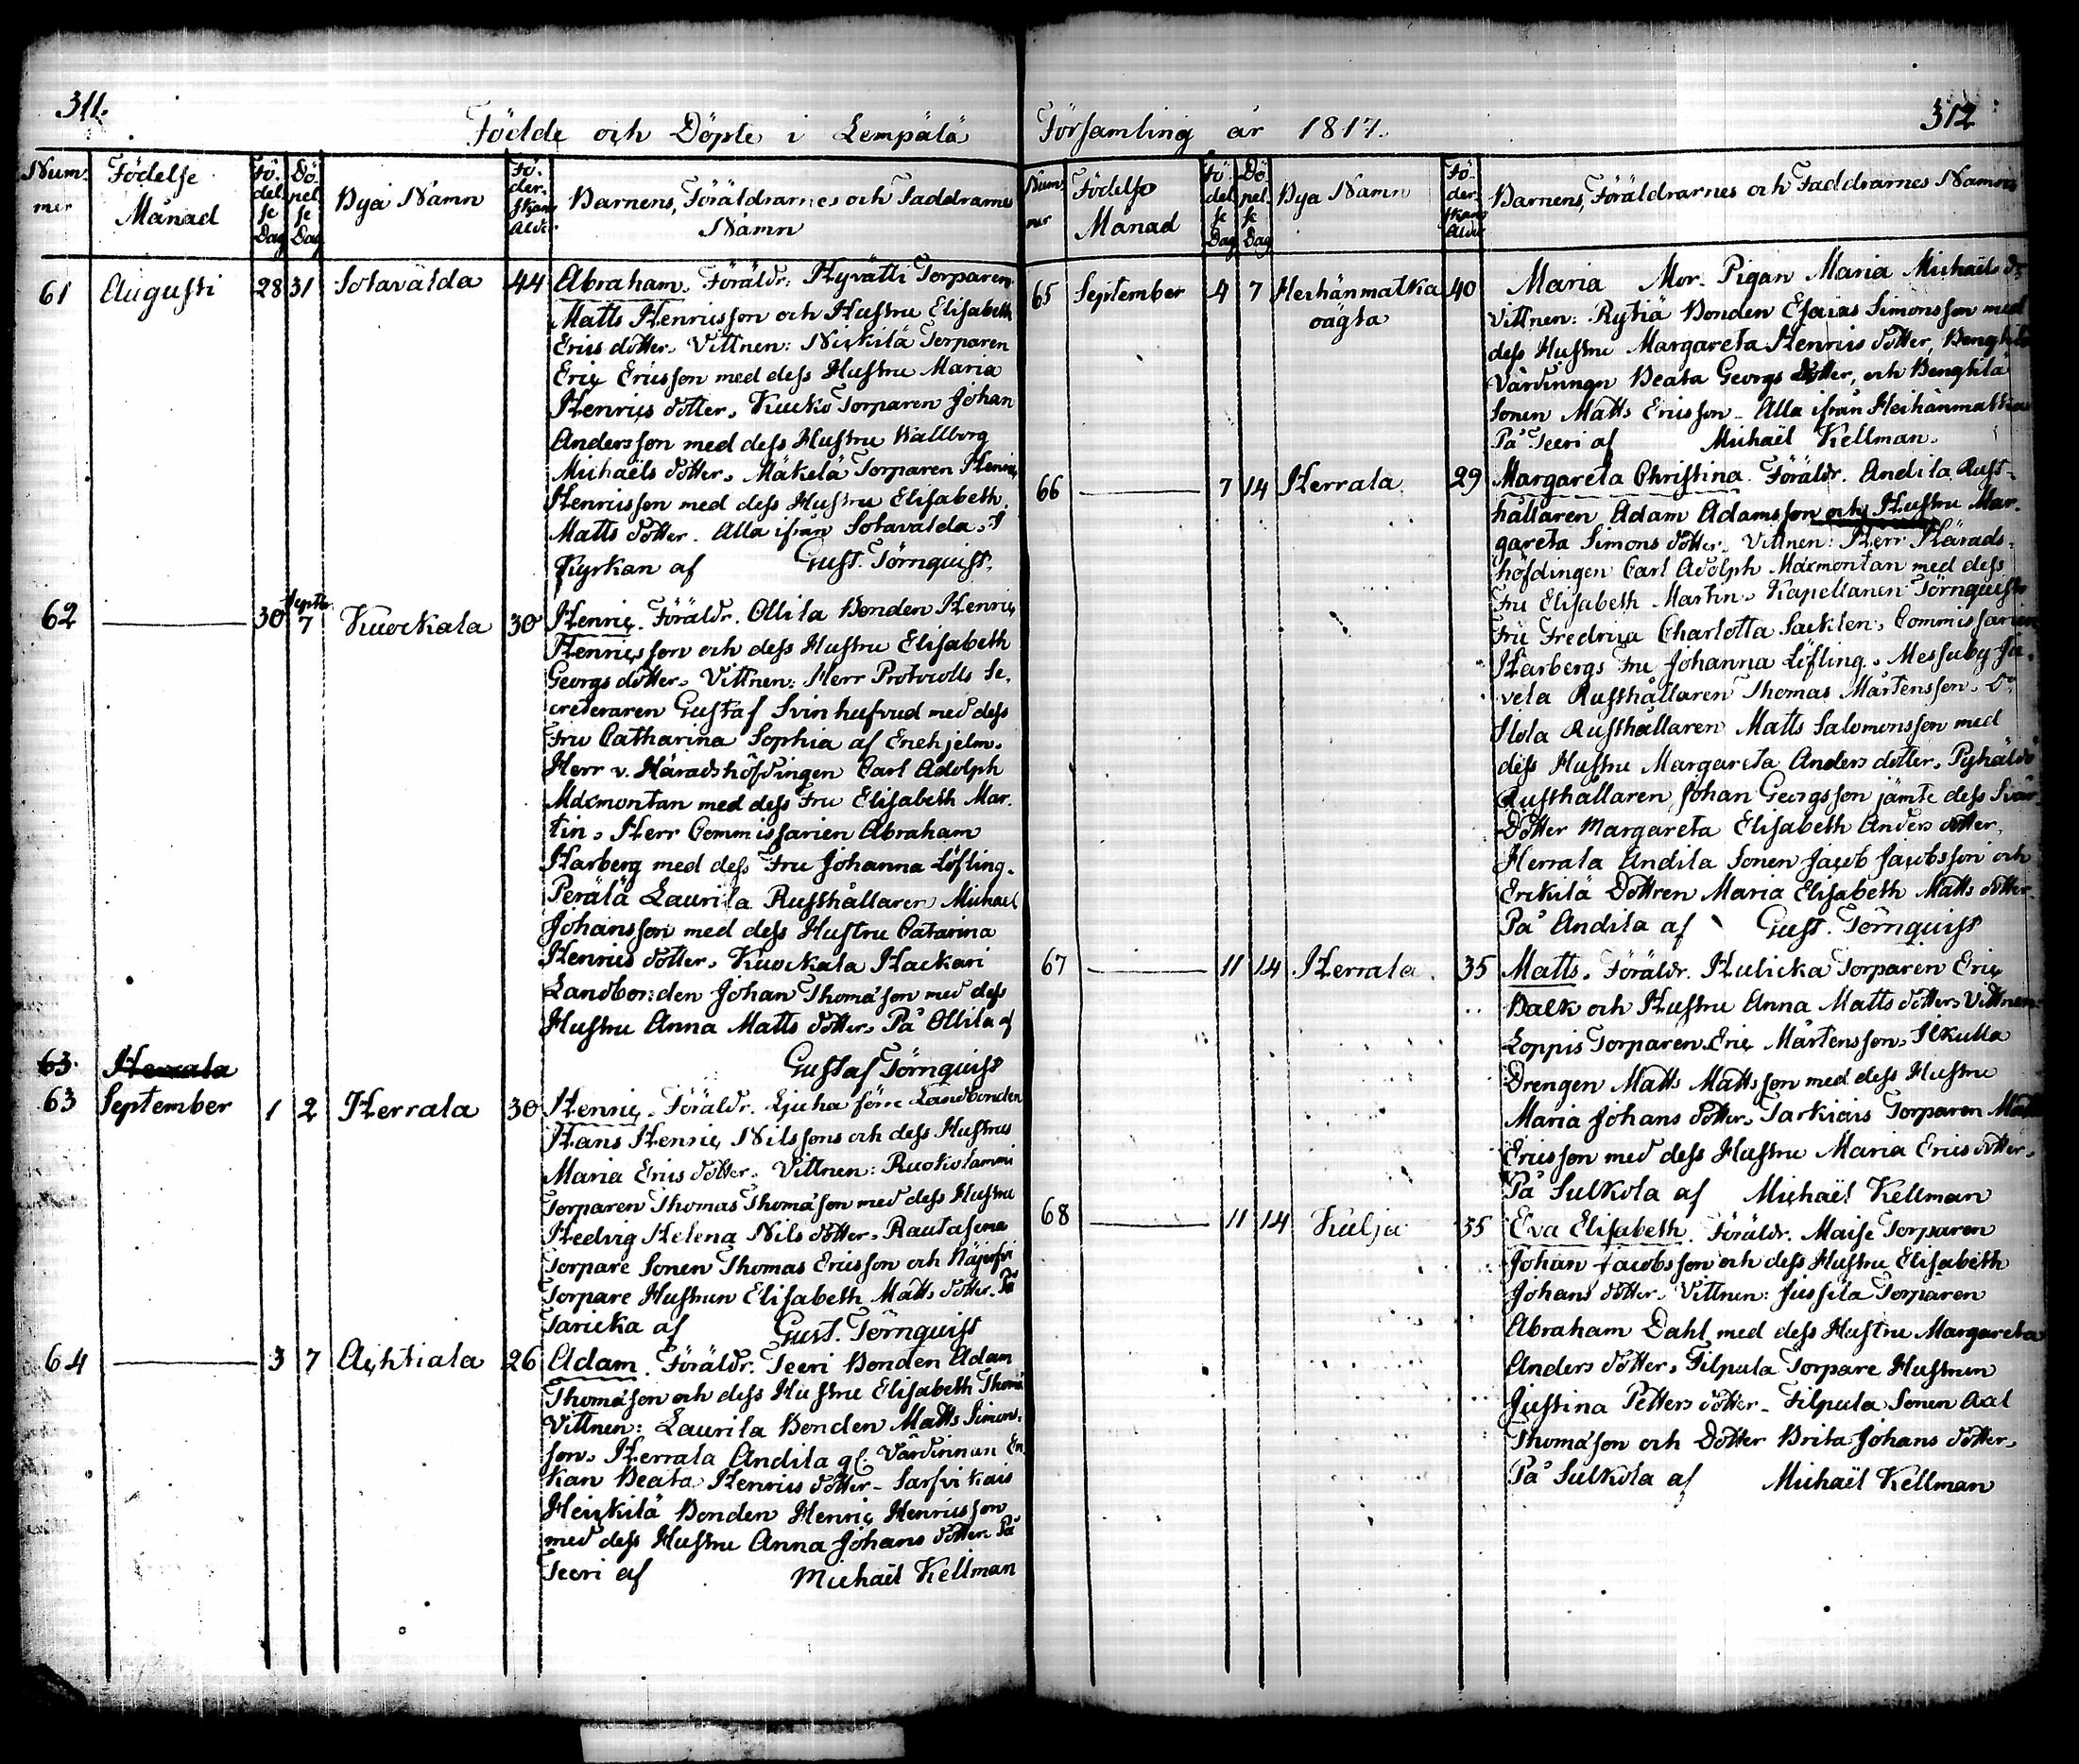 311.
Födde och Döpte i Lempälä
Num mer
Födelse Månad
Fö. del se Dag
Dö pel se Dag
Bya Namn
Fö. der.
Barnens, Föräldrarnes och Faddrarnes Namn
61 Augusti 28 31 Sotavalda 44 Abraham. Föräldr: Hyvätti Torparen
Matts Henricsson och Hustru Elisabeth
Erics dotter. Vittnen: Nickilä Torparen
Eric Ericsson med dess Hustru Maria
Henrics dotter. Kucko Torparen Johan
Andersson med dess Hustru Wallborg
Michaëls dotter. Mäkelä Torparen Henric
Henricsson med dess Hustru Elisabeth
Matts dotter. Alla ifrån Sotavalda. I
Kyrkan af Gust. Törnquist.
62 — 30 Septbr. 7 Kuockala 30 Henric. Föräldr. Ollila Bonden Henric
Henricsson och dess Hustru Elisabeth
Georgs dotter. Vittnen: Herr Protocolls Se.
creteraren Gustaf Svinhufvud med dess
Fru Catharina Sophia af Enehjelm.
Herr v. Häradshöfdingen Carl Adolph
Maxmontan med dess Fru Elisabeth Mar.
tin. Herr Commissarien Abraham
Harberg med dess Fru Johanna Löfling.
Perälä Laurila Rusthållaren Michael
Johansson med dess Hustru Catarina
Henrics dotter. Kuockala Hackari
Landbonden Johan Thomasson med dess
Hustru Anna Matts dotter. På Ollila af
Gustaf Törnquist
63. Herrala
63 September 1 2 Herrala 30 Henric. Föräldr. Ljuha förre Landbonden
Hans Henric Nilssons och dess Hustrus
Maria Erics dotter. Vittnen: Ruokolammi
Torparen Thomas Thomasson med dess Hustru
Hedvig Helena Nils dotter. Rautasema
Torpare Sonen Thomas Ericsson och
Torpare Hustrun Elisabeth Matts dotter. På
Taricka af Gust. Törnquist
64 — 3 7 Achtiala 26 Adam. Föräldr. Teeri Bonden Adam
Thomasson och dess Hustru Elisabeth Thoma
Vittnen: Laurila Bonden Matts Simons.
son. Herrala Andila gl. Värdinnan En
kan Beata Henrics dotter. Sarfvikais
Heickilä Bonden Henric Henricsson
med dess Hustru Anna Johans dotter. På
Teeri af Michaël Kellman
312
Församling år 1817.
Num mer
Födelse Månad
Fö. del se Dag
Dö pel. se Dag
Bya Namn
Fö. der.
Barnens, Föräldrarnes och Faddrarnes Namn
65 September 4 7 Heikänmatka oägta 40 Maria Mor. Pigan Maria Michaëls dr
Vittnen: Rytiä Bonden Esaias Simonsson med
dess Hustru Margareta Henrics dotter, Benghtlä
Värdinngn Beata Georgs dotter, och Benghtlä
Sonen Matts Ericsson. Alla ifrån Heikänmatka
På Teeri af Michaël Kellman.
66 — 7 14 Herrala 29 Margareta Christina. Föräldr. Andila Rust-
hållaren Adam Adamsson och Hustru Mar.
gareta Simons dotter. Vittnen: Herr Härads-
höfdingen Carl Adolph Maxmontan med dess
Fru Elisabeth Martin. Kapellanen Törnquists
Fru Fredrica Charlotta Sacklen, Commissarien
Harbergs Fru Johanna Löfling. Messuby Ja.
vela Rusthållaren Thomas Mårtensson. Do
Ilola Rusthållaren Matts Salomonsson med
dess Hustru Margareta Anders dotter. Pyhäldö
Rusthållaren Johan Georgsson jämte dess Svär
Dotter Margareta Elisabeth Anders dotter,
Herrala Andila Sonen Jacob Jacobsson och
Erckilä Dottren Maria Elisabeth Matts dotter.
På Andila af Gust. Törnquist
67 — 11 14 Herrala 35 Matts. Föräldr. Hulicka Torparen Eric
Balk och Hustru Anna Matts dotter. Vittnen
Loppis Torparen Eric Mårtensson. Ilkulla
Drengen Matts Mattsson med dess Hustru
Maria Johans dotter. Tarkiais Torparen Matts
Ericsson med dess Hustru Maria Erics dotter.
På Sulkola af Michaël Kellman
68 — 11 14 Kulja 35 Eva Elisabeth. Föräldr. Maise Torparen
Johan Jacobsson och dess Hustru Elisabeth
Johans dotter. Vittnen: Jussila Torparen
Abraham Dahl med dess Hustru Margareta
Anders dotter. Filpula Torpare Hustrun
Justina Petters dotter. Filpula Sonen Axl
Thomasson och Dotter Brita Johans dotter.
På Sulkola af Michaël Kellman